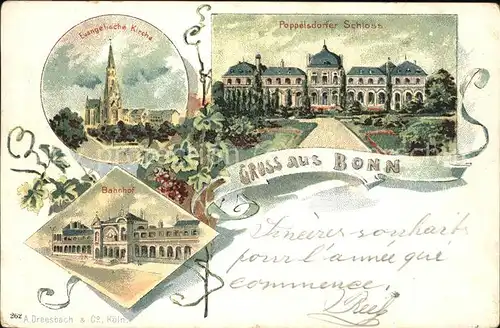 Evangelische Kirche
Poppelsdorfer Schloss
GRUSS AUS BONN
Bahnhof
Sincères souhaits
pour l'année qui
commence.
262 A. Dreesbach & Co., Köln.